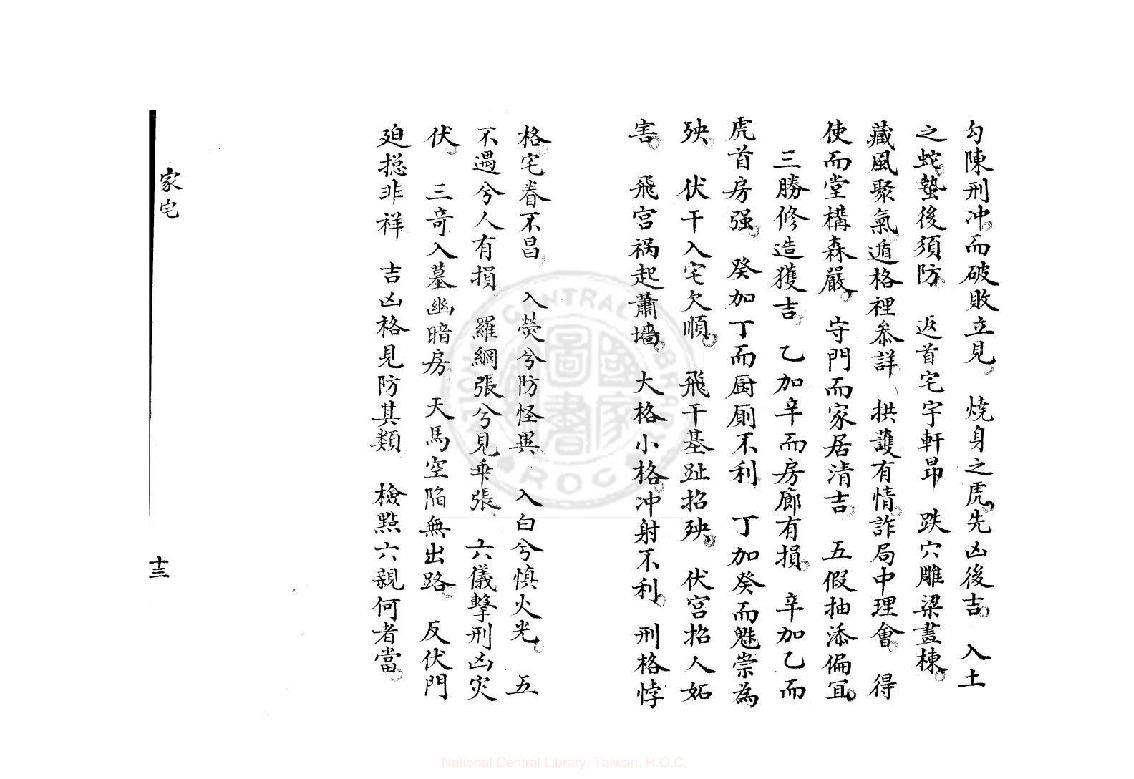 勾陳刑冲而破敗立見　燒身之虎先凶後吉　入土
之蛇蟄後須防　返首宅宇軒昂　跌穴雕梁畫棟
藏風聚氣遁格裡叅詳　拱護有情詐局中理會　得
使而堂構森嚴　守門而家居清吉　五假抽添偏宜
三勝修造獲吉　乙加辛而房廊有損　辛加乙而
虎首房强　癸加丁而厨厠不利　丁加癸而魅祟為
殃　伏干入宅欠順　飛干基趾招殃　伏宫招人妬
害　飛宫禍起蕭墻　大格小格冲射不利　刑格悖
格宅眷不昌　入熒兮防怪異　入白兮慎火光　五
不遇兮人有損　羅網張兮見乖張　六儀擊刑凶灾
伏　三奇入墓幽暗房　天馬空陷無出路　反伏門
廹摠非祥　吉凶格見防其類　檢點六親何者當
家宅
十三
National Central Library, Taiwan, R.O.C.